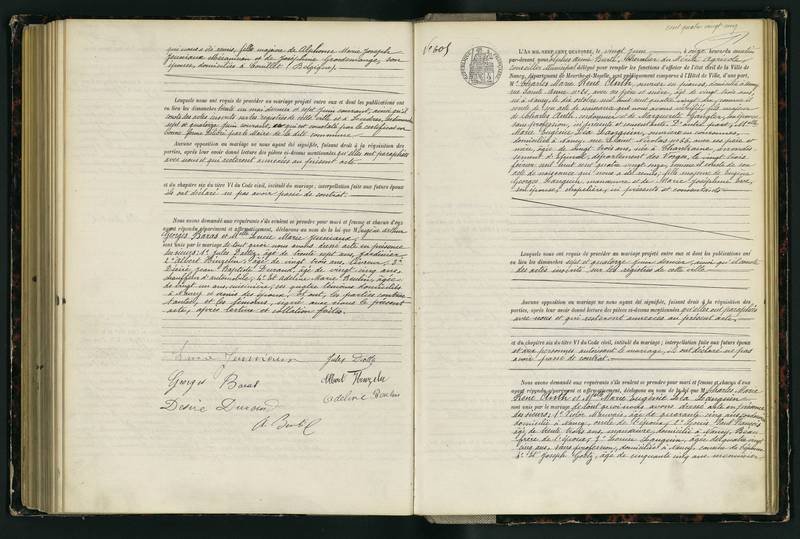 qui nous a été remis, fille majeure de Alphonse Marie Joseph
Jeuniaux Mécanicien et de Joséphine Grandmange, son
épouse, domiciliés à (Belgique).
Lesquels nous ont requis de procéder au mariage projeté entre eux et dont les publications ont
eu lieu les dimanches trente un mai dernier et sept juin courant, ainsi qu'il
conste des actes inscrits sur les registres de cette ville et à les dimanches
sept et quatorze juin courants, ce qui est constaté par le certificat en
bonne forme délivré par le maire de la dite commune
Aucune opposition au mariage ne nous ayant été signifiée, faisant droit à la réquisition des
parties, après leur avoir donné lecture des pièces ci-dessus mentionnées qu'elles ont paraphées
avec nous et qui resteront annexées au présent acte
et du chapitre six du titre VI du Code civil, intitulé du mariage; interpellation faite aux futurs époux
ils ont déclaré ne pas avoir passé de contrat.
Nous avons demandé aux requérants s'ils veulent se prendre pour mari et femme et chacun d'eux
ayant répondu séparément et affirmativement, déclarons au nom de la loi que M. Eugène Arthur
Georges Baras et Melle Lucie Marie Jeuniaux
sont unis par le mariage de tout quoi nous avons dressé acte en présence
des sieurs 1° Jules Diotty, âgé de trente sept ans, jardinier
2° Albert Hinzelin, âgé de vingt trois ans, livreur 3°
Désiré Jean Baptiste Durand, âgé de vingt cinq ans,
chauffeur d'automobile, 4° et Adeline Marie Boulin, âgée
de vingt un ans, cuisinière, ces quatre témoins domiciliés
à Nancy et amis des époux. Et ont, les parties contrac-
tantes, et les témoins, signé avec nous le présent
acte, après lecture et collation faites.
Lucie Jeuniaux Jules Diotty
Georges Baras Albert Hinzelin
Désiré Durand Adeline Boulin
cent quatre vingt onze
N° 605
L'AN MIL NEUF CENT QUATORZE, le vingt Juin à onze heures du matin
par-devant nous Alphonse Aimé Chevalier du Mérite Agricole
Conseiller Municipal délégué pour remplir les fonctions d'officier de l'état civil de la Ville de
Nancy, département de Meurthe-et-Moselle, sont publiquement comparus à l'Hôtel de Ville, d'une part,
M. Charles Marie René domicilié à Nancy
rue Sainte Anne N° 21, avec ses père et mère, âgé de vingt trois ans,
né à Nancy, le dix octobre mil huit cent quatre vingt dix, comme il
conste de son acte de naissance que nous avons vérifié, fils majeur
de Charles et de Marguerite son épouse
sans profession, ici présents et consentants. D'autre part, Melle
Marie Eugénie Léa Lanquin
domiciliée à Nancy, rue Saint Nicolas avec ses père et
mère, âgée de vingt trois ans, née à arrondis-
sement d'Épinal, département des Vosges, le vingt trois
février mil huit cent quatre vingt onze, comme il conste de son
acte de naissance qui nous a été remis, fille majeure de Eugène
Georges Lanquin, manœuvre et de Marie Joséphine
son épouse, chapelière, ici présents et consentants
Lesquels nous ont requis de procéder au mariage projeté entre eux et dont les publications ont
eu lieu les dimanches sept et quatorze juin dernier, ainsi qu'il conste
des actes inscrits sur les registres de cette ville
Aucune opposition au mariage ne nous ayant été signifiée, faisant droit à la réquisition des
parties, après leur avoir donné lecture des pièces ci-dessus mentionnées qu'elles ont paraphées
avec nous et qui resteront annexées au présent acte,
et du chapitre six du titre VI du Code civil, intitulé du mariage; interpellation faite aux futurs époux
et aux personnes autorisant le mariage, ils ont déclaré ne pas
avoir passé de contrat.
Nous avons demandé aux requérants s'ils veulent se prendre pour mari et femme et chacun d'eux
ayant répondu séparément et affirmativement, déclarons au nom de la loi que M. Charles Marie
René et Melle Marie Eugénie Léa Lanquin
sont unis par le mariage de tout quoi nous avons dressé acte en présence
des sieurs 1° Victor Mauvais, âgé de quarante cinq ans,
domicilié à Nancy, oncle de l'époux; 2° Louis Paul François
âgé de trente trois ans, domicilié à Nancy, Beau
frère de l'époux; 3° Lanquin, âgé de quarante vingt
cinq ans, sans profession, domicilié à Nancy, cousin de l'épouse
4° et Joseph Goetz, âgé de cinquante cinq ans menuisier